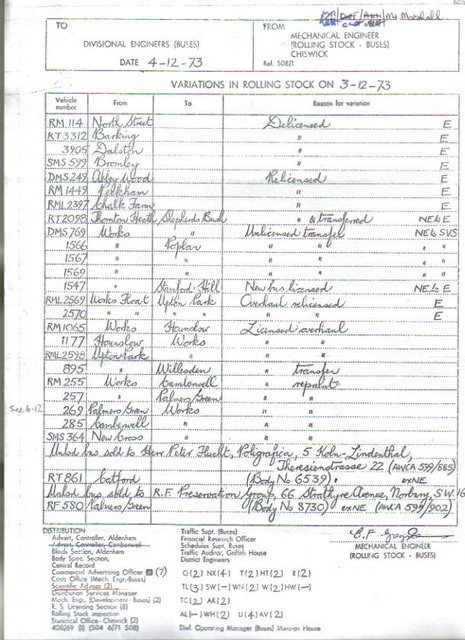 TO
DIVISIONAL ENGINEERS (BUSES)
DATE 4-12-73
FROM
MECHANICAL ENGINEER
(ROLLING STOCK - BUSES)
CHISWICK
Ref. 508/1
VARIATIONS IN ROLLING STOCK ON 3-12-73
Vehicle number From To Reason for variation
RM 114 North Street Delicensed E
RT 3312 Barking " E
3905 Dalston " E
SMS 599 Bromley " E
DMS 249 Abbey Wood Relicensed E
RM 1449 Peckham " E
RML 2397 Chalk Farm " E
RT 2098 Thornton Heath Shepherds Bush " & transferred NE to E
DMS 769 Works " Unlicensed transfer NE to SVS
1566 " Poplar " " " "
1567 " " " " " "
1569 " " " " " "
1547 " Stamford Hill New bus licensed NE to E
RML 2569 Works Float Upton Park Overhaul relicensed E
2570 " " " " E
RM 1065 Works Hounslow Licensed overhaul
1177 Hounslow Works " "
RML 2598 Upton Park " " "
895 " Willesden " transfer
RM 255 Works Camberwell " repaint
257 " Palmers Green " "
See 6-12 269 Palmers Green Works " "
285 Camberwell " " "
SMS 364 New Cross " " "
Unlsd bus sold to Herr Peter Flucht, Poligrafica, 5 Koln-Lindenthal,
Theresienstrasse 22 (AWCA 599/885)
RT 861 Catford (Body No 6539) exNE
Unlsd bus sold to R.F. Preservation Group, 66 Strathyre Avenue, Norbury, S.W.16
RF 580 Palmers Green (Body No 8730) exNE (AWCA 599/902)
MECHANICAL ENGINEER
(ROLLING STOCK - BUSES)
DISTRIBUTION
Advert. Controller, Aldenham
Advert. Controller, Camberwell
Blinds Section, Aldenham
Body Spec. Section,
Central Record
Commercial Advertising Officer (7)
Costs Office (Mech. Engr-Buses)
Scientific Adviser (2)
Distribution Services Manager
Mech. Engr. (Development - Buses) (2)
R. S. Licensing Section (8)
Rolling Stock Inspection
Statistical Office - Chiswick (2)
Traffic Supt. (Buses)
Financial Research Officer
Schedules Supt. Buses
Traffic Auditor, Griffith House
District Engineers
Q(2) NX(4) T(2) HT(2) R(2)
TL(3) SW(-) WN(2) W(2) HW(-)
TC(2) AR(2)
AL(-) WH(2) U(4) AV(2)
Divl. Operating Manager (Buses) Mansion House